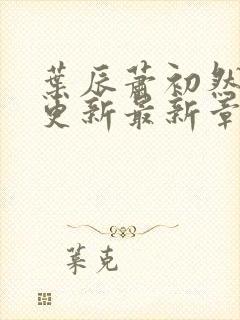 葉辰蕭初然
更新最新章
葉克